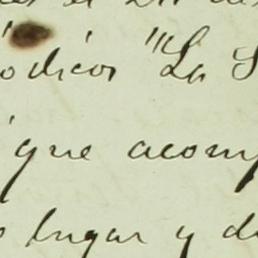 ódicos "La S
que acom
lugar y d